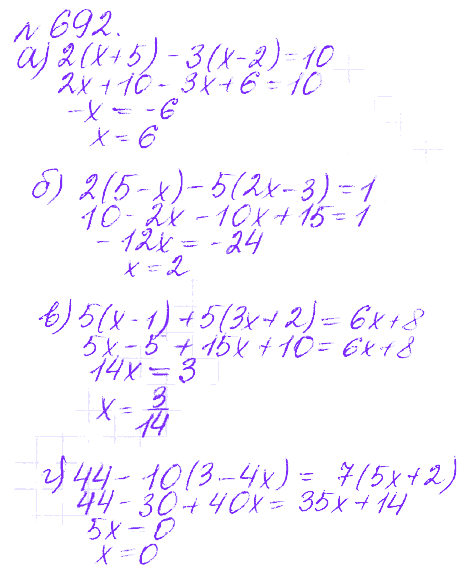 № 692.
а) 2(x+5) - 3(x-2)=10
2x+10 - 3x+6=10
-x = -6
x = 6
б) 2(5-x)-5(2x-3)=1
10-2x-10x+15=1
-12x = -24
x = 2
в) 5(x-1)+5(3x+2)= 6x+8
5x-5 + 15x+10= 6x+8
14x = 3
x = 3/14
г) 44 - 10(3-4x) = 7(5x+2)
44-30+40x = 35x+14
5x = 0
x = 0